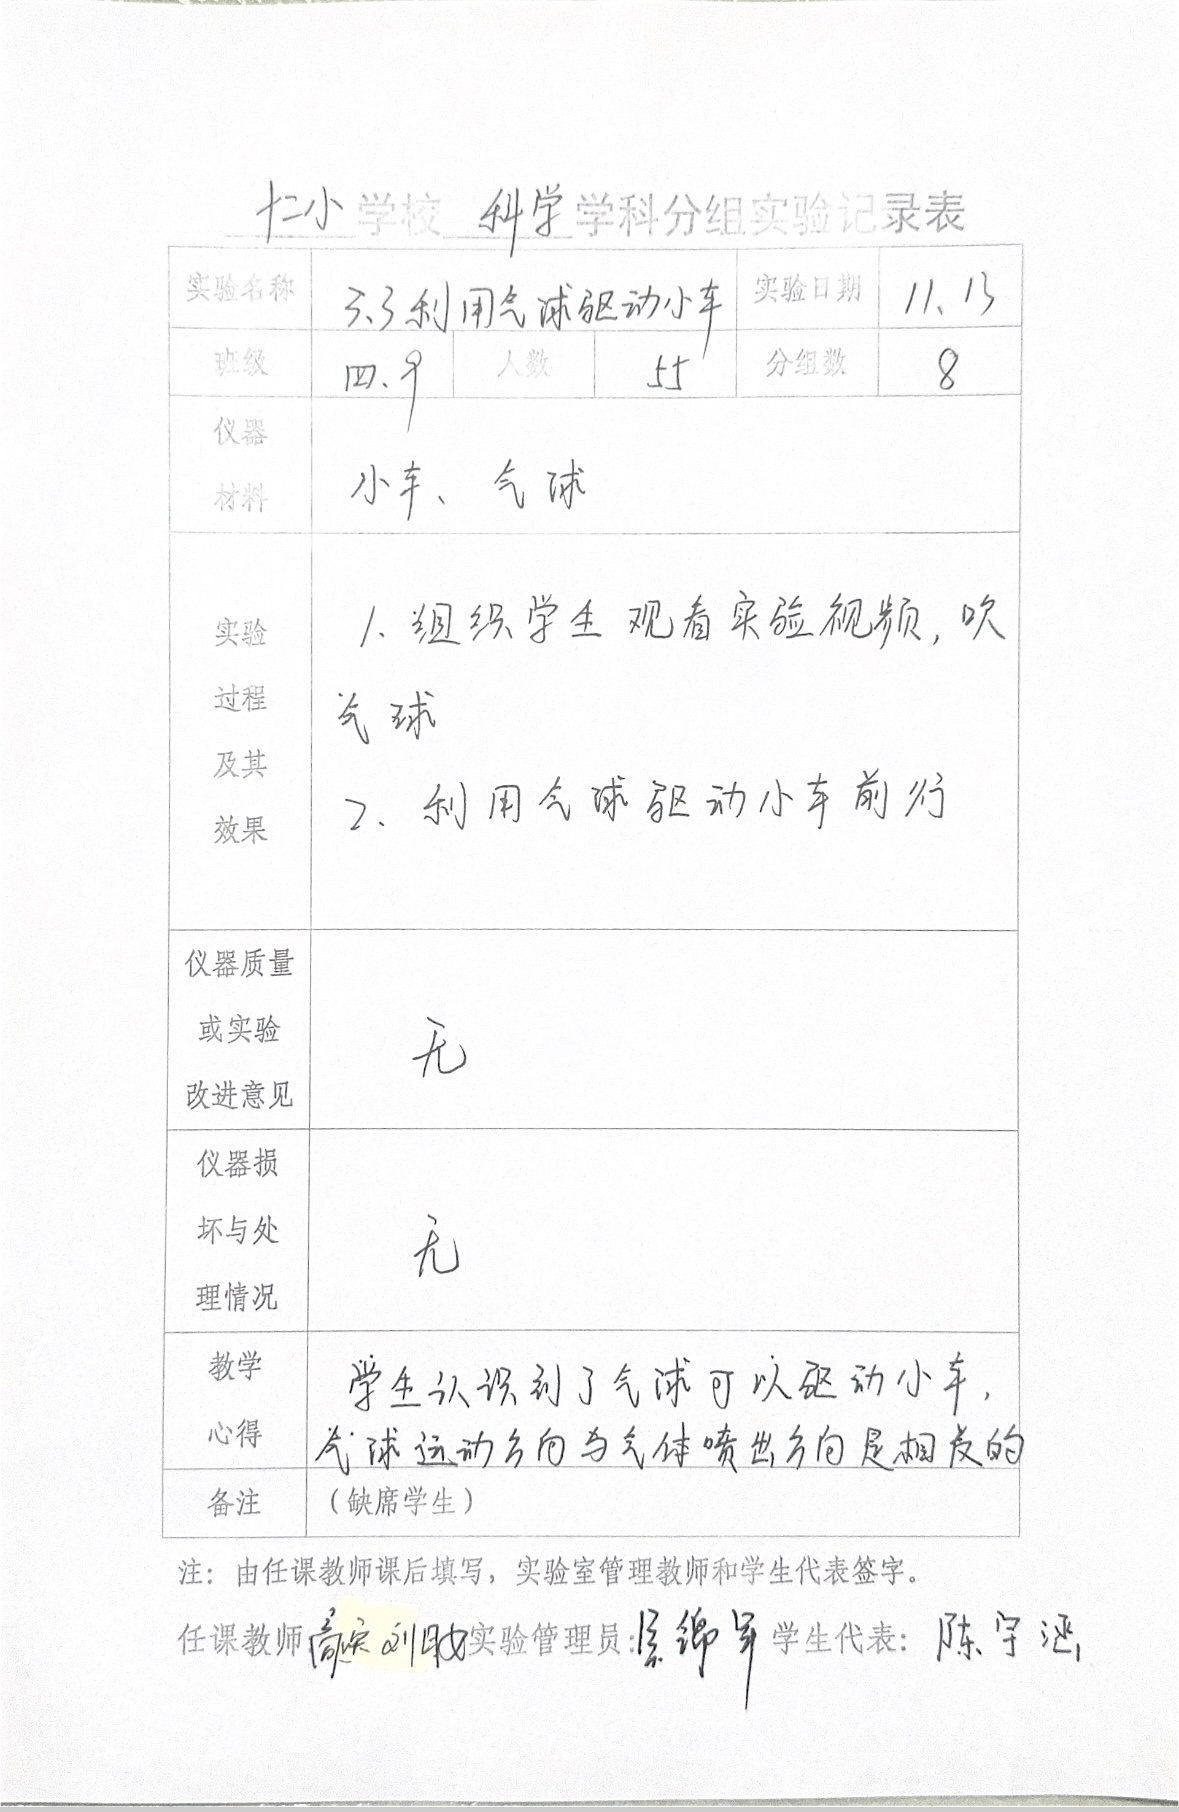 十二小学校 科学学科分组实验记录表
实验名称 3.3利用气球驱动小车 实验日期 11.13
班级 四.9 人数 55 分组数 8
仪器
材料
小车、气球
实验
过程
及其
效果
1.组织学生观看实验视频,吹
气球
2.利用气球驱动小车前行
仪器质量
或实验
改进意见
无
仪器损
坏与处
理情况
无
教学
心得
学生认识到了气球可以驱动小车,
气球运动方向与气体喷出方向是相反的
备注 (缺席学生)
注:由任课教师课后填写,实验室管理教师和学生代表签字。
任课教师 实验管理员: 学生代表: 陈宇涵